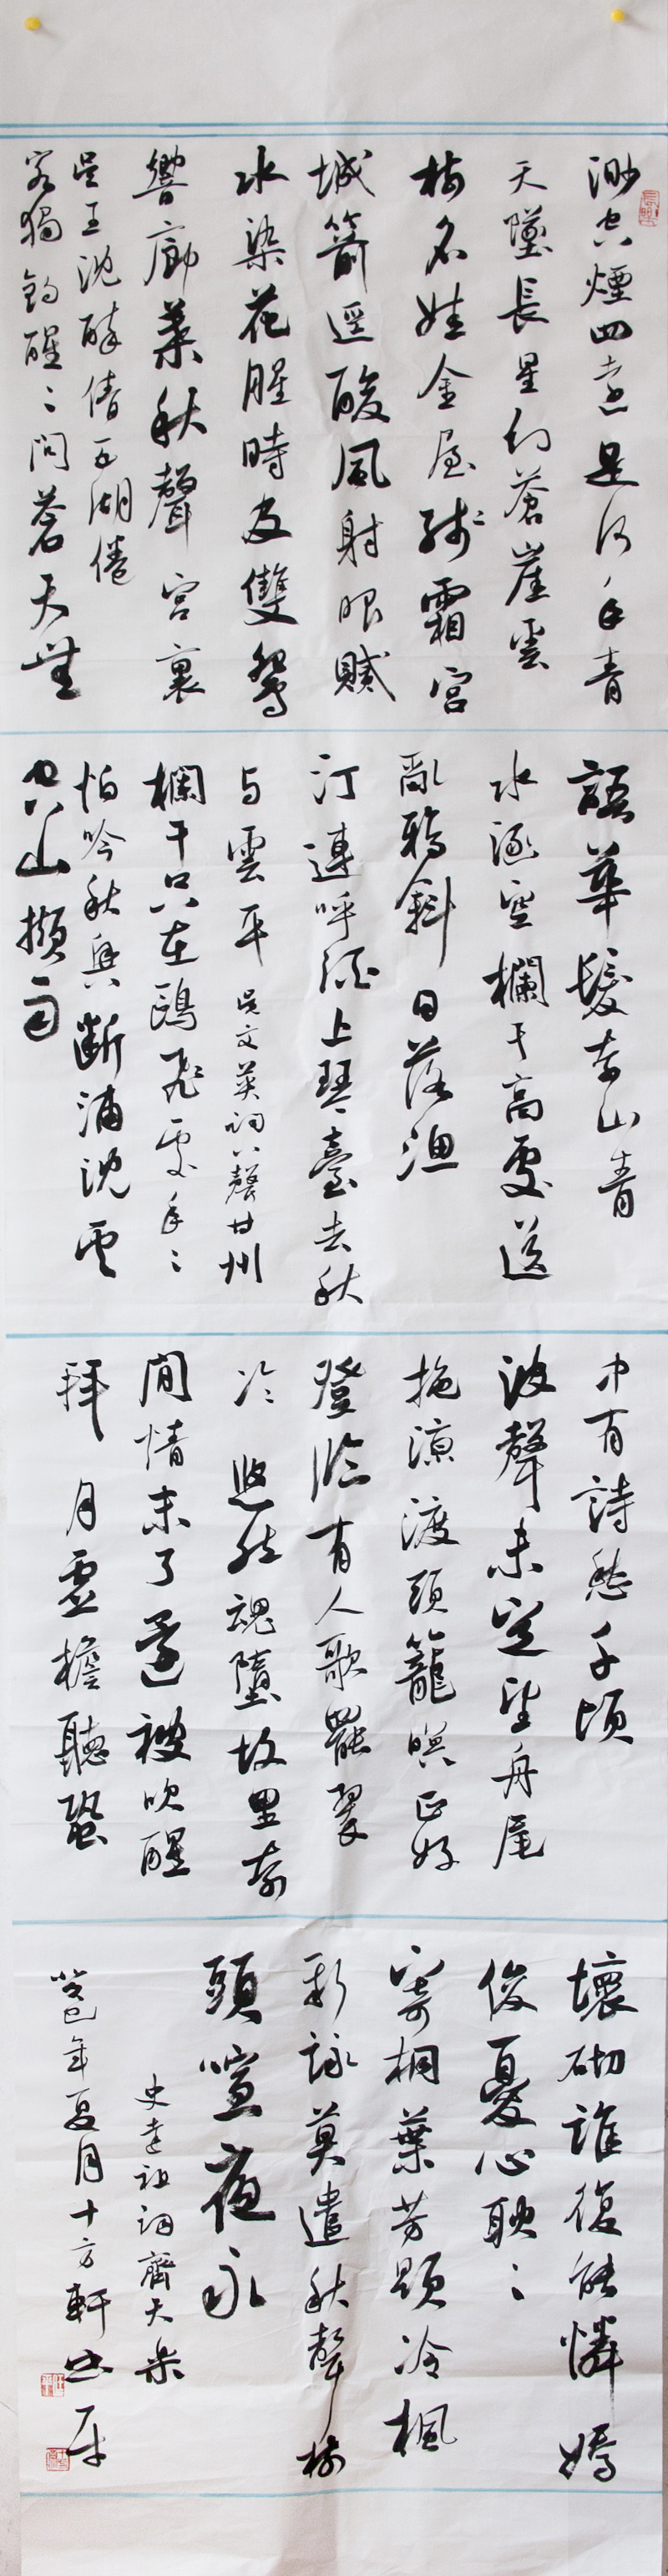 渺空煙四遠是何年青
天墜長星幻蒼崖雲
樹名娃金屋殘霜宮
城箭逕酸風射眼膩
水染花腥時及雙鴛
響廊葉秋聲宮裏
吳王沈醉倩五湖倦
客獨釣醒〻問蒼天無
語華髮奈山青
水涵空欄干高處送
亂鴉斜日落漁
汀連呼酒上琴臺去秋
与雲平 吳文英詞八聲甘州
欄干只在鷗飛處年〻
怕吟秋興斷浦沈雲
空山雨
中有詩愁千頃
波聲未定望舟尾
拖涼渡頭籠暝正好
登臨有人歌罷翠
冷〻 悠然魂墮故里奈
閒情未了還被吹醒
拜月虛檐聽蛩
壞砌誰復能憐嬌
俊憂心耿〻
寄桐葉芳題冷楓
新詠莫遣秋聲樹
頭喧夜永
史達祖詞齊天樂
癸巳年夏月十方軒書